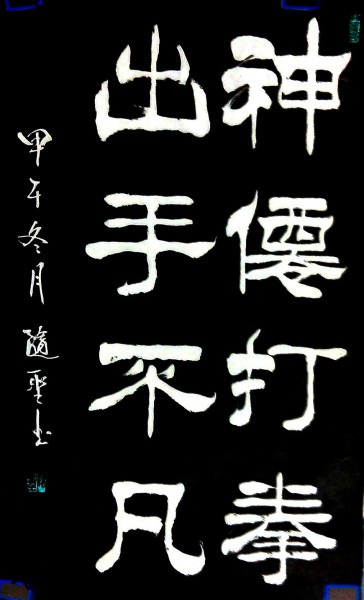 神僊打拳
出手不凡
甲午冬月 隨聖书